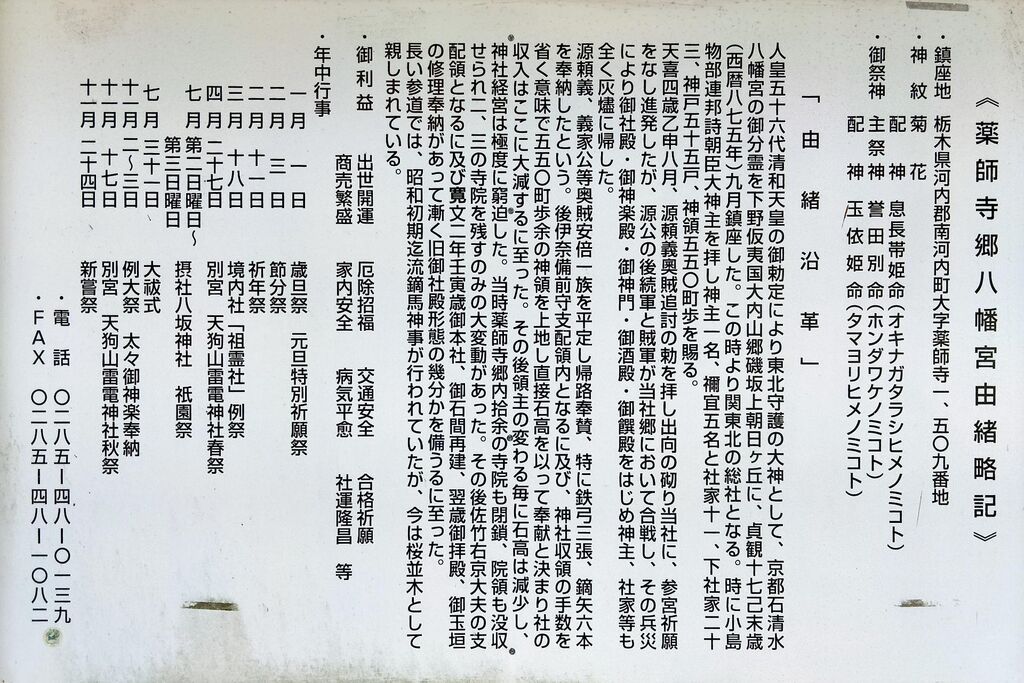 《薬師寺郷八幡宮由緒略記》
・鎮座地 栃木県河内郡南河内町大字薬師寺一、五〇九番地
・神紋 菊花
・御祭神 主祭神 誉田別命（ホンダワケノミコト）
配神 息長帯姫命（オキナガタラシヒメノミコト）
配神 玉依姫命（タマヨリヒメノミコト）
「由緒沿革」
人皇五十六代清和天皇の御勅定により東北守護の大神として、京都石清水
八幡宮の御分霊を下野仮夷国大内山郷磯坂上朝日ヶ丘に、貞観十七己末歳
（西暦八七五年）九月鎮座した。この時より関東北の総社となる。時に小島
物部連邦詩朝臣大神主を拝し神主一名、禰宜五名と社家十一、下社家二十
三、神戸五十五戸、神領五五〇町歩を賜る。
天喜四歳乙申八月、源頼義奥賊追討の勅を拝し出向の砌り当社に、参宮祈願
をなし進発したが、源公の後続軍と賊軍が当社郷において合戦し、その兵災
により御社殿・御神楽殿・御神門・御酒殿・御饌殿をはじめ神主、社家等も
全く灰燼に帰した。
源頼義、義家公等奥賊安倍一族を平定し帰路奉賛、特に鉄弓三張、鏑矢六本
を奉納したという。後伊奈備前守支配領内となるに及び、神社収領の手数を
省く意味で五五〇町歩余の神領を上地し直接石高を以って奉献と決まり社の
収入はここに大減するに至った。その後領主の変わる毎に石高は減少し、
神社経営は極度に窮迫した。当時薬師寺郷内拾余の寺院も閉鎖、院領も没収
せられ二、三の寺院を残すのみの大変動があった。その後佐竹右京大夫の支
配領となるに及び寛文二年壬寅歳御本社、御石間再建、翌歳御拝殿、御玉垣
の修理奉納があって漸く旧御社殿形態の幾分かを備うるに至った。
長い参道では、昭和初期迄流鏑馬神事が行われていたが、今は桜並木として
親しまれている。
・御利益 出世開運 厄除招福 交通安全 合格祈願
商売繁盛 家内安全 病気平愈 社運隆昌 等
・年中行事
一月 一日 歳旦祭 元旦特別祈願祭
二月 三日 節分祭
二月 十一日 祈年祭
三月 十八日 境内社「祖霊社」例祭
四月 二十七日 別宮 天狗山雷電神社春祭
七月 第二日曜日～
第三日曜日 摂社八坂神社 祇園祭
七月 三十一日 大祓式
十一月 二～三日 例大祭 太々御神楽奉納
十一月 十七日 別宮 天狗山雷電神社秋祭
十一月 二十四日 新嘗祭
・電話 〇二八五―四八―〇一三九
・FAX 〇二八五―四八―一〇八二